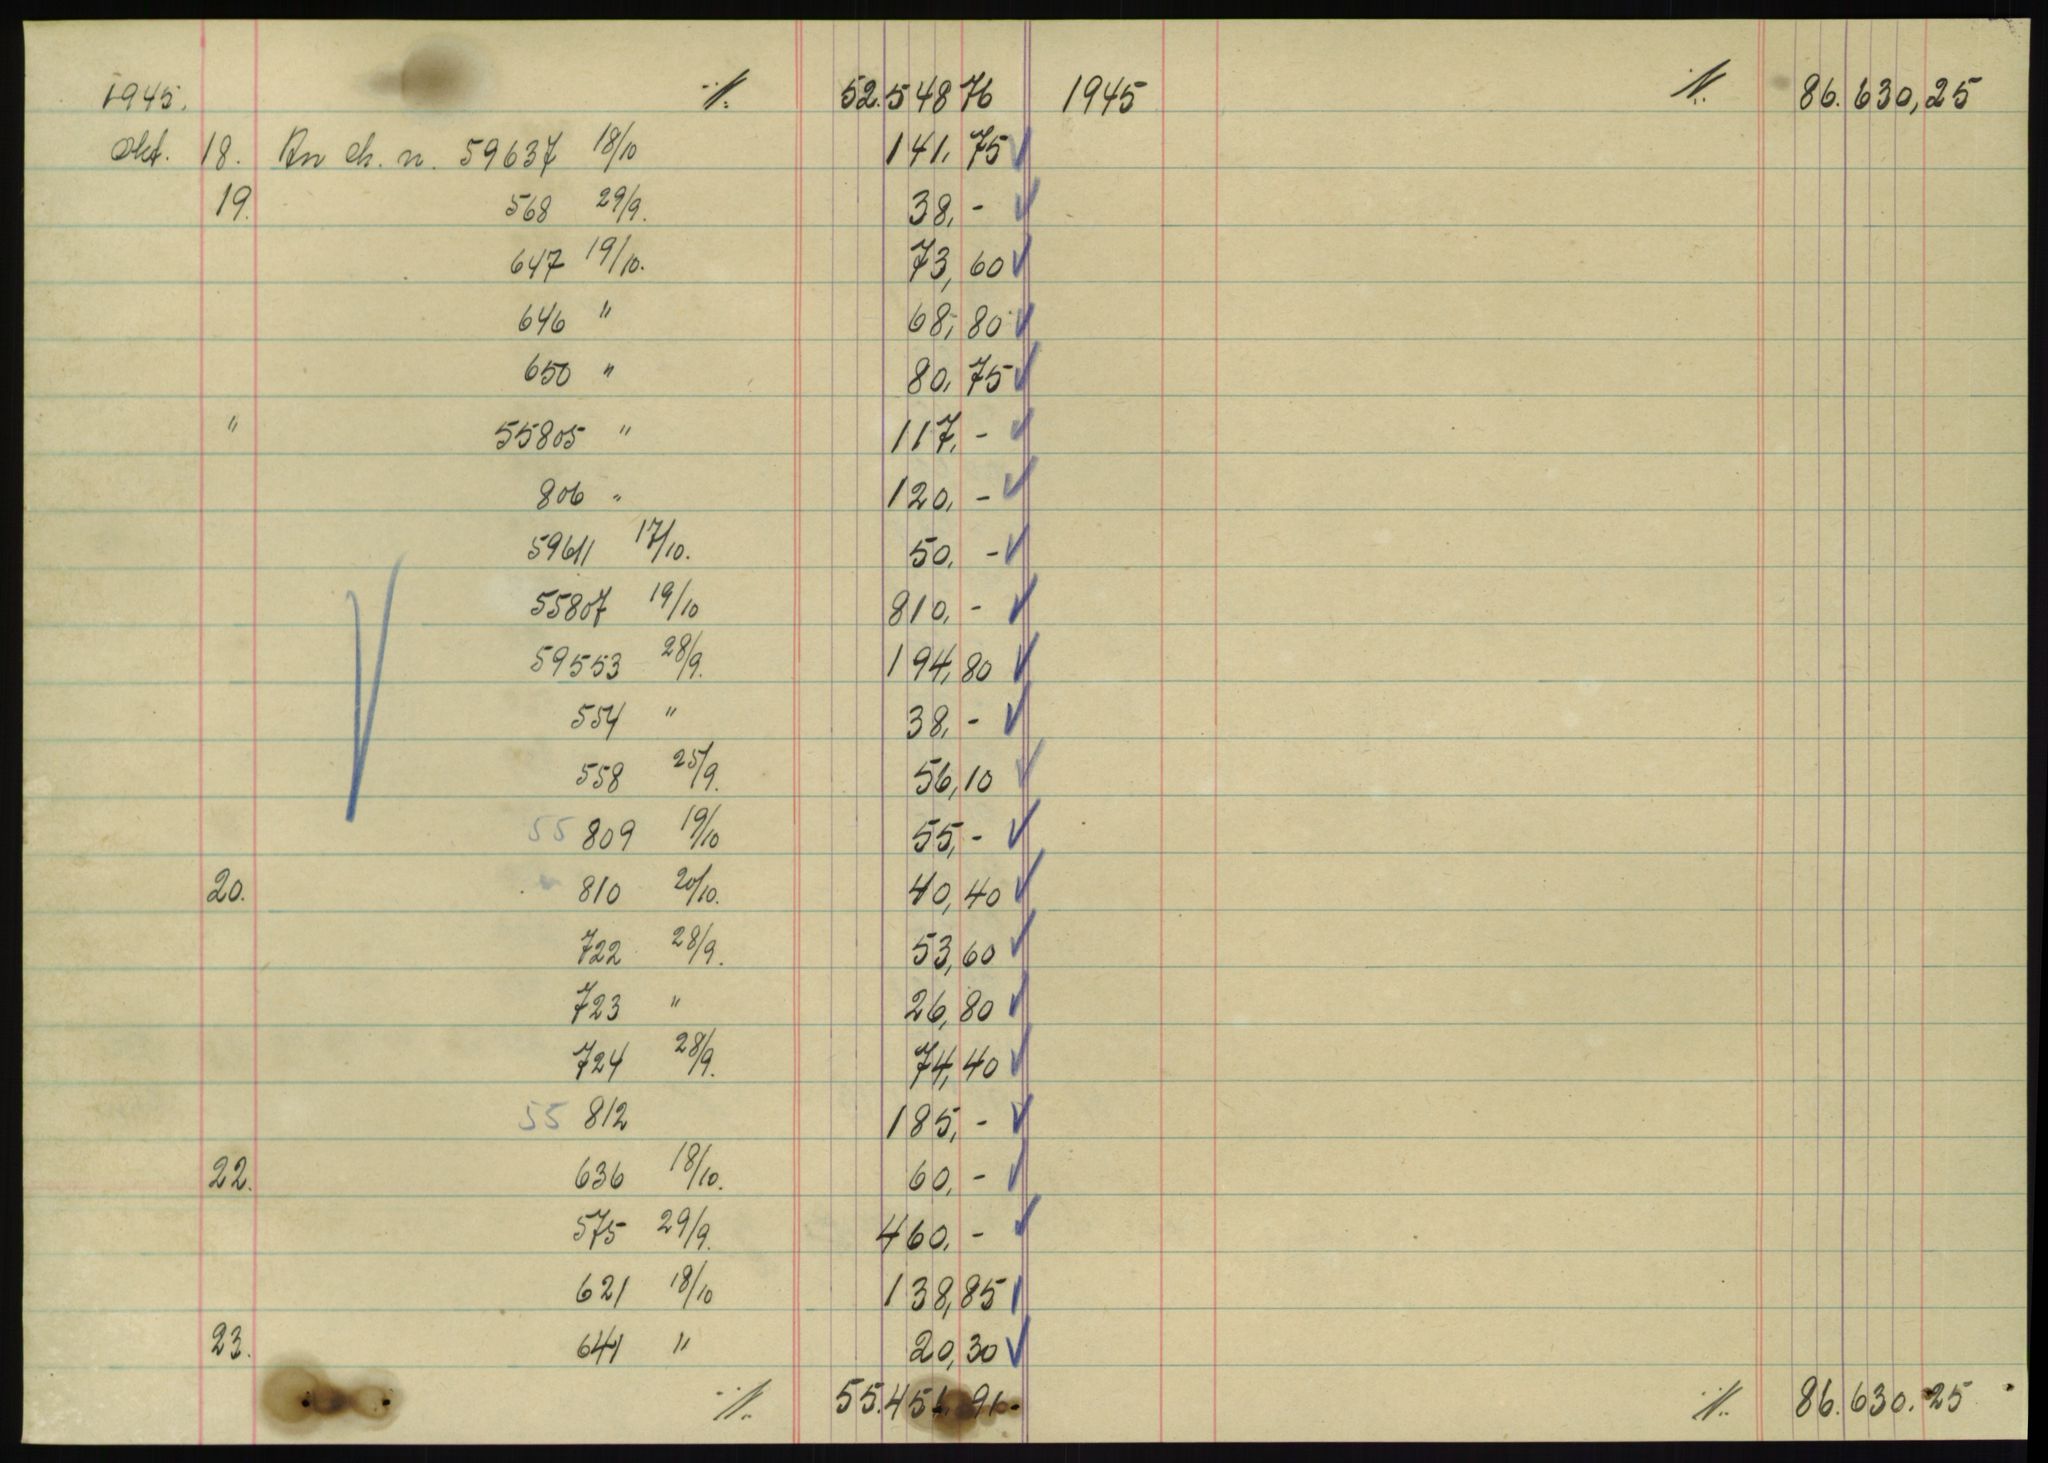 1945. ·/. 52.548 76 1945 ·/. 86.630,25
Okt. 18. An ch. n. 59637 18/10 141,75 ✓
19. 568 29/9. 38,- ✓
647 19/10. 73,60 ✓
646 " 68,80 ✓
650 " 80,75 ✓
" 55805 " 117,- ✓
806 " 120,- ✓
59611 17/10. 50,- ✓
55807 19/10 810,- ✓
59553 28/9. 194,80 ✓
554 " 38,- ✓
558 25/9. 56,10 ✓
55 809 19/10 55,- ✓
20. 810 20/10. 40,40 ✓
722 28/9. 53,60 ✓
723 " 26,80 ✓
724 28/9. 74,40 ✓
55 812 185,- ✓
22. 636 18/10. 60,- ✓
575 29/9. 460,- ✓
621 18/10 138,85 ✓
23. 641 " 20,30 ✓
·/. 55.451.91 ·/. 86.630.25